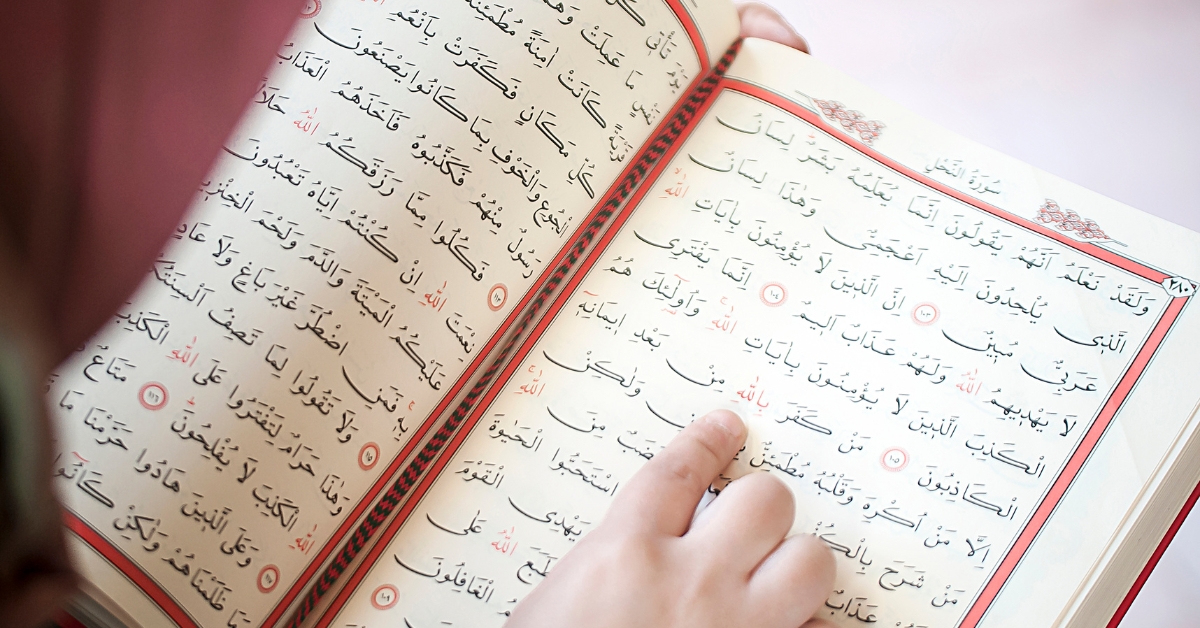 سُورَةُ النَّحْلِ
٢٨٠
وَلَقَدْ نَعْلَمُ اَنَّهُمْ يَقُولُونَ اِنَّمَا يُعَلِّمُهُ بَشَرٌ لِسَانُ
الَّذٖي يُلْحِدُونَ اِلَيْهِ اَعْجَمِيٌّ وَهٰذَا لِسَانٌ
عَرَبِيٌّ مُبٖينٌ ١٠٣ اِنَّ الَّذٖينَ لَا يُؤْمِنُونَ بِاٰيَاتِ اللّٰهِ
لَا يَهْدٖيهِمُ اللّٰهُ وَلَهُمْ عَذَابٌ اَلٖيمٌ ١٠٤ اِنَّمَا يَفْتَرِي
الْكَذِبَ الَّذٖينَ لَا يُؤْمِنُونَ بِاٰيَاتِ اللّٰهِ وَاُولٰٓئِكَ هُمُ
الْكَاذِبُونَ ١٠٥ مَنْ كَفَرَ بِاللّٰهِ مِنْ بَعْدِ اٖيمَانِهٖٓ
اِلَّا مَنْ اُكْرِهَ وَقَلْبُهُ مُطْمَئِنٌّ وَلٰكِنْ
مَنْ شَرَحَ غَضَبٌ مِنَ اللّٰهِ
عَذَابٌ اسْتَحَبُّوا الْحَيٰوةَ
يَهْدِي الْقَوْمَ
طَبَعَ اللّٰهُ عَلٰى
الْغَافِلُونَ
يَوْمَ تَأْتٖي كُلُّ
نَفْسٍ مَا عَمِلَتْ
قَرْيَةً كَانَتْ اٰمِنَةً مُطْمَئِنَّةً
كُلِّ مَكَانٍ فَكَفَرَتْ بِاَنْعُمِ
الْجُوعِ وَالْخَوْفِ بِمَا كَانُوا يَصْنَعُونَ
رَسُولٌ مِنْهُمْ فَكَذَّبُوهُ فَاَخَذَهُمُ الْعَذَابُ
١١٣ فَكُلُوا مِمَّا رَزَقَكُمُ اللّٰهُ
نِعْمَتَ اللّٰهِ اِنْ كُنْتُمْ اِيَّاهُ تَعْبُدُونَ
عَلَيْكُمُ الْمَيْتَةَ وَالدَّمَ وَلَحْمَ الْخِنْزٖيرِ
بِهٖ فَمَنِ اضْطُرَّ غَيْرَ بَاغٍ وَلَا عَادٍ
١١٥ وَلَا تَقُولُوا لِمَا تَصِفُ
وَهٰذَا حَرَامٌ لِتَفْتَرُوا عَلَى اللّٰهِ الْكَذِبَ
اللّٰهِ الْكَذِبَ لَا يُفْلِحُونَ ١١٦ مَتَاعٌ
١١٧ وَعَلَى الَّذٖينَ هَادُوا حَرَّمْنَا مَا
وَمَا ظَلَمْنَاهُمْ وَلٰكِنْ كَانُوا